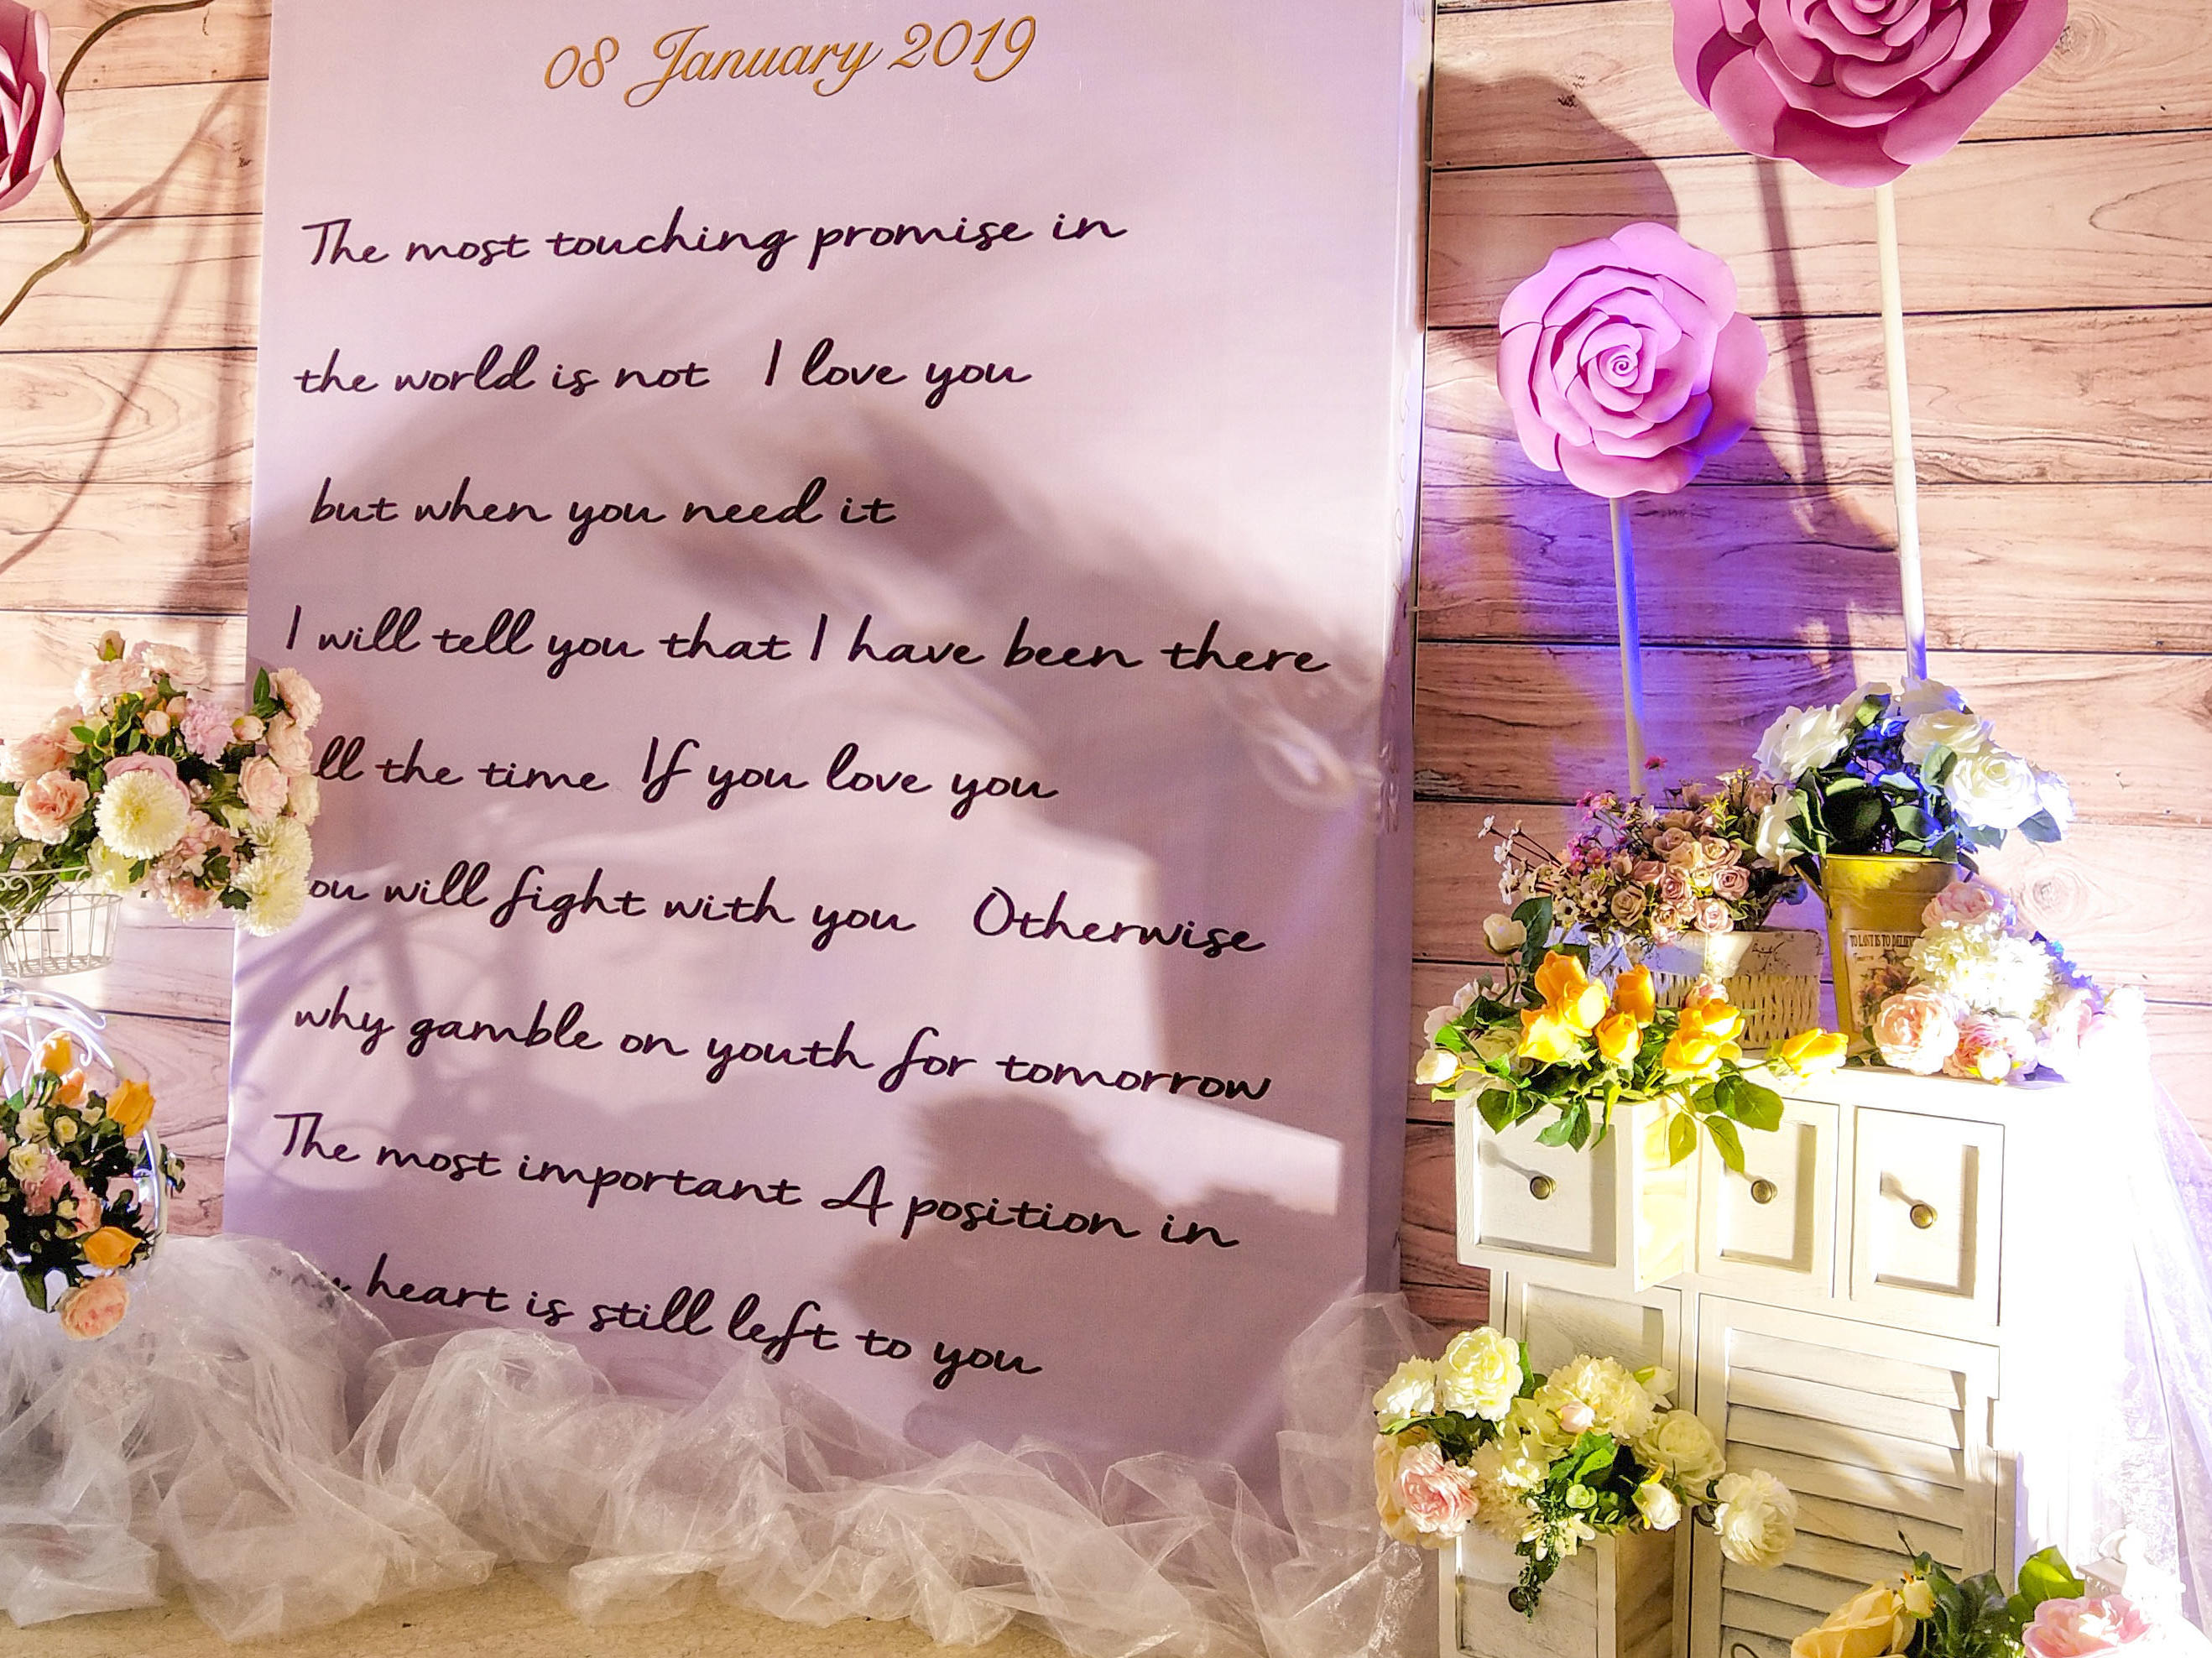 08 January 2019
The most touching promise in
the world is not I love you
but when you need it
I will tell you that I have been there
ll the time If you love you
ou will fight with you Otherwise
why gamble on youth for tomorrow
The most important A position in
heart is still left to you